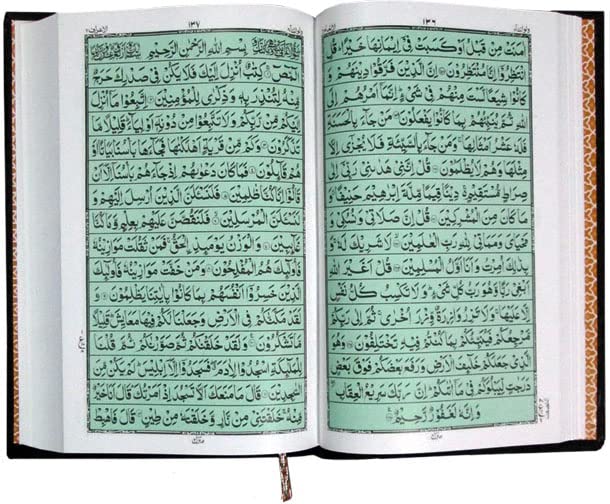 ولو اننا
١٣٦
اٰمَنَتْ مِنْ قَبْلُ اَوْ كَسَبَتْ فِیْۤ اِیْمَانِهَا خَیْرًا ؕ قُلِ
انْتَظِرُوْۤا اِنَّا مُنْتَظِرُوْنَ اِنَّ الَّذِیْنَ فَرَّقُوْا دِیْنَهُمْ وَ
كَانُوْا شِیَعًا لَّسْتَ مِنْهُمْ فِیْ شَیْءٍ ؕ اِنَّمَاۤ اَمْرُهُمْ اِلَی
اللّٰهِ ثُمَّ یُنَبِّئُهُمْ بِمَا كَانُوْا یَفْعَلُوْنَ مَنْ جَآءَ بِالْحَسَنَةِ
فَلَهٗ عَشْرُ اَمْثَالِهَا ۚ وَ مَنْ جَآءَ بِالسَّیِّئَةِ فَلَا یُجْزٰۤی اِلَّا
مِثْلَهَا وَ هُمْ لَا یُظْلَمُوْنَ قُلْ اِنَّنِیْ هَدٰىنِیْ رَبِّیْۤ اِلٰی
صِرَاطٍ مُّسْتَقِیْمٍ دِیْنًا قِیَمًا مِّلَّةَ اِبْرٰهِیْمَ حَنِیْفًا ۚ وَ
مَا كَانَ مِنَ الْمُشْرِكِیْنَ قُلْ اِنَّ صَلَاتِیْ وَ نُسُكِیْ وَ
مَحْیَایَ وَ مَمَاتِیْ لِلّٰهِ رَبِّ الْعٰلَمِیْنَ لَا شَرِیْكَ لَهٗ ۚ وَ
بِذٰلِكَ اُمِرْتُ وَ اَنَا اَوَّلُ الْمُسْلِمِیْنَ قُلْ اَغَیْرَ اللّٰهِ
اَبْغِیْ رَبًّا وَّ هُوَ رَبُّ كُلِّ شَیْءٍ ؕ وَ لَا تَكْسِبُ كُلُّ نَفْسٍ
اِلَّا عَلَیْهَا ۚ وَ لَا تَزِرُ وَازِرَةٌ وِّزْرَ اُخْرٰی ۚ ثُمَّ اِلٰی رَبِّكُمْ
مَّرْجِعُكُمْ فَیُنَبِّئُكُمْ بِمَا كُنْتُمْ فِیْهِ تَخْتَلِفُوْنَ وَ هُوَ
الَّذِیْ جَعَلَكُمْ خَلٰٓىِٕفَ الْاَرْضِ وَ رَفَعَ بَعْضَكُمْ فَوْقَ بَعْضٍ
دَرَجٰتٍ لِّیَبْلُوَكُمْ فِیْ مَاۤ اٰتٰىكُمْ ؕ اِنَّ رَبَّكَ سَرِیْعُ الْعِقَابِ
وَ اِنَّهٗ لَغَفُوْرٌ رَّحِیْمٌ
الاعراف ٧
١٣٧
ولو اننا
بِسْمِ اللّٰهِ الرَّحْمٰنِ الرَّحِیْمِ
الٓمّٓصٓ كِتٰبٌ اُنْزِلَ اِلَیْكَ فَلَا یَكُنْ فِیْ صَدْرِكَ حَرَجٌ
مِّنْهُ لِتُنْذِرَ بِهٖ وَ ذِكْرٰی لِلْمُؤْمِنِیْنَ اِتَّبِعُوْا مَاۤ اُنْزِلَ
اِلَیْكُمْ مِّنْ رَّبِّكُمْ وَ لَا تَتَّبِعُوْا مِنْ دُوْنِهٖۤ اَوْلِیَآءَ ؕ قَلِیْلًا مَّا
تَذَكَّرُوْنَ وَ كَمْ مِّنْ قَرْیَةٍ اَهْلَكْنٰهَا فَجَآءَهَا بَاْسُنَا بَیَاتًا اَوْ
هُمْ قَآىِٕلُوْنَ فَمَا كَانَ دَعْوٰىهُمْ اِذْ جَآءَهُمْ بَاْسُنَاۤ اِلَّاۤ اَنْ
قَالُوْۤا اِنَّا كُنَّا ظٰلِمِیْنَ فَلَنَسْـَٔلَنَّ الَّذِیْنَ اُرْسِلَ اِلَیْهِمْ وَ
لَنَسْـَٔلَنَّ الْمُرْسَلِیْنَ فَلَنَقُصَّنَّ عَلَیْهِمْ بِعِلْمٍ وَّ مَا كُنَّا
غَآىِٕبِیْنَ وَ الْوَزْنُ یَوْمَىِٕذِ اِ۟لْحَقُّ ۚ فَمَنْ ثَقُلَتْ مَوَازِیْنُهٗ
فَاُولٰٓىِٕكَ هُمُ الْمُفْلِحُوْنَ وَ مَنْ خَفَّتْ مَوَازِیْنُهٗ فَاُولٰٓىِٕكَ
الَّذِیْنَ خَسِرُوْۤا اَنْفُسَهُمْ بِمَا كَانُوْا بِاٰیٰتِنَا یَظْلِمُوْنَ وَ
لَقَدْ مَكَّنّٰكُمْ فِی الْاَرْضِ وَ جَعَلْنَا لَكُمْ فِیْهَا مَعَایِشَ ؕ قَلِیْلًا
مَّا تَشْكُرُوْنَ وَ لَقَدْ خَلَقْنٰكُمْ ثُمَّ صَوَّرْنٰكُمْ ثُمَّ قُلْنَا
لِلْمَلٰٓىِٕكَةِ اسْجُدُوْا لِاٰدَمَ ۖ فَسَجَدُوْۤا اِلَّاۤ اِبْلِیْسَ ؕ لَمْ یَكُنْ مِّنَ
السّٰجِدِیْنَ قَالَ مَا مَنَعَكَ اَلَّا تَسْجُدَ اِذْ اَمَرْتُكَ ؕ قَالَ اَنَا خَیْرٌ
مِّنْهُ ۚ خَلَقْتَنِیْ مِنْ نَّارٍ وَّ خَلَقْتَهٗ مِنْ طِیْنٍ قَالَ فَاهْبِطْ